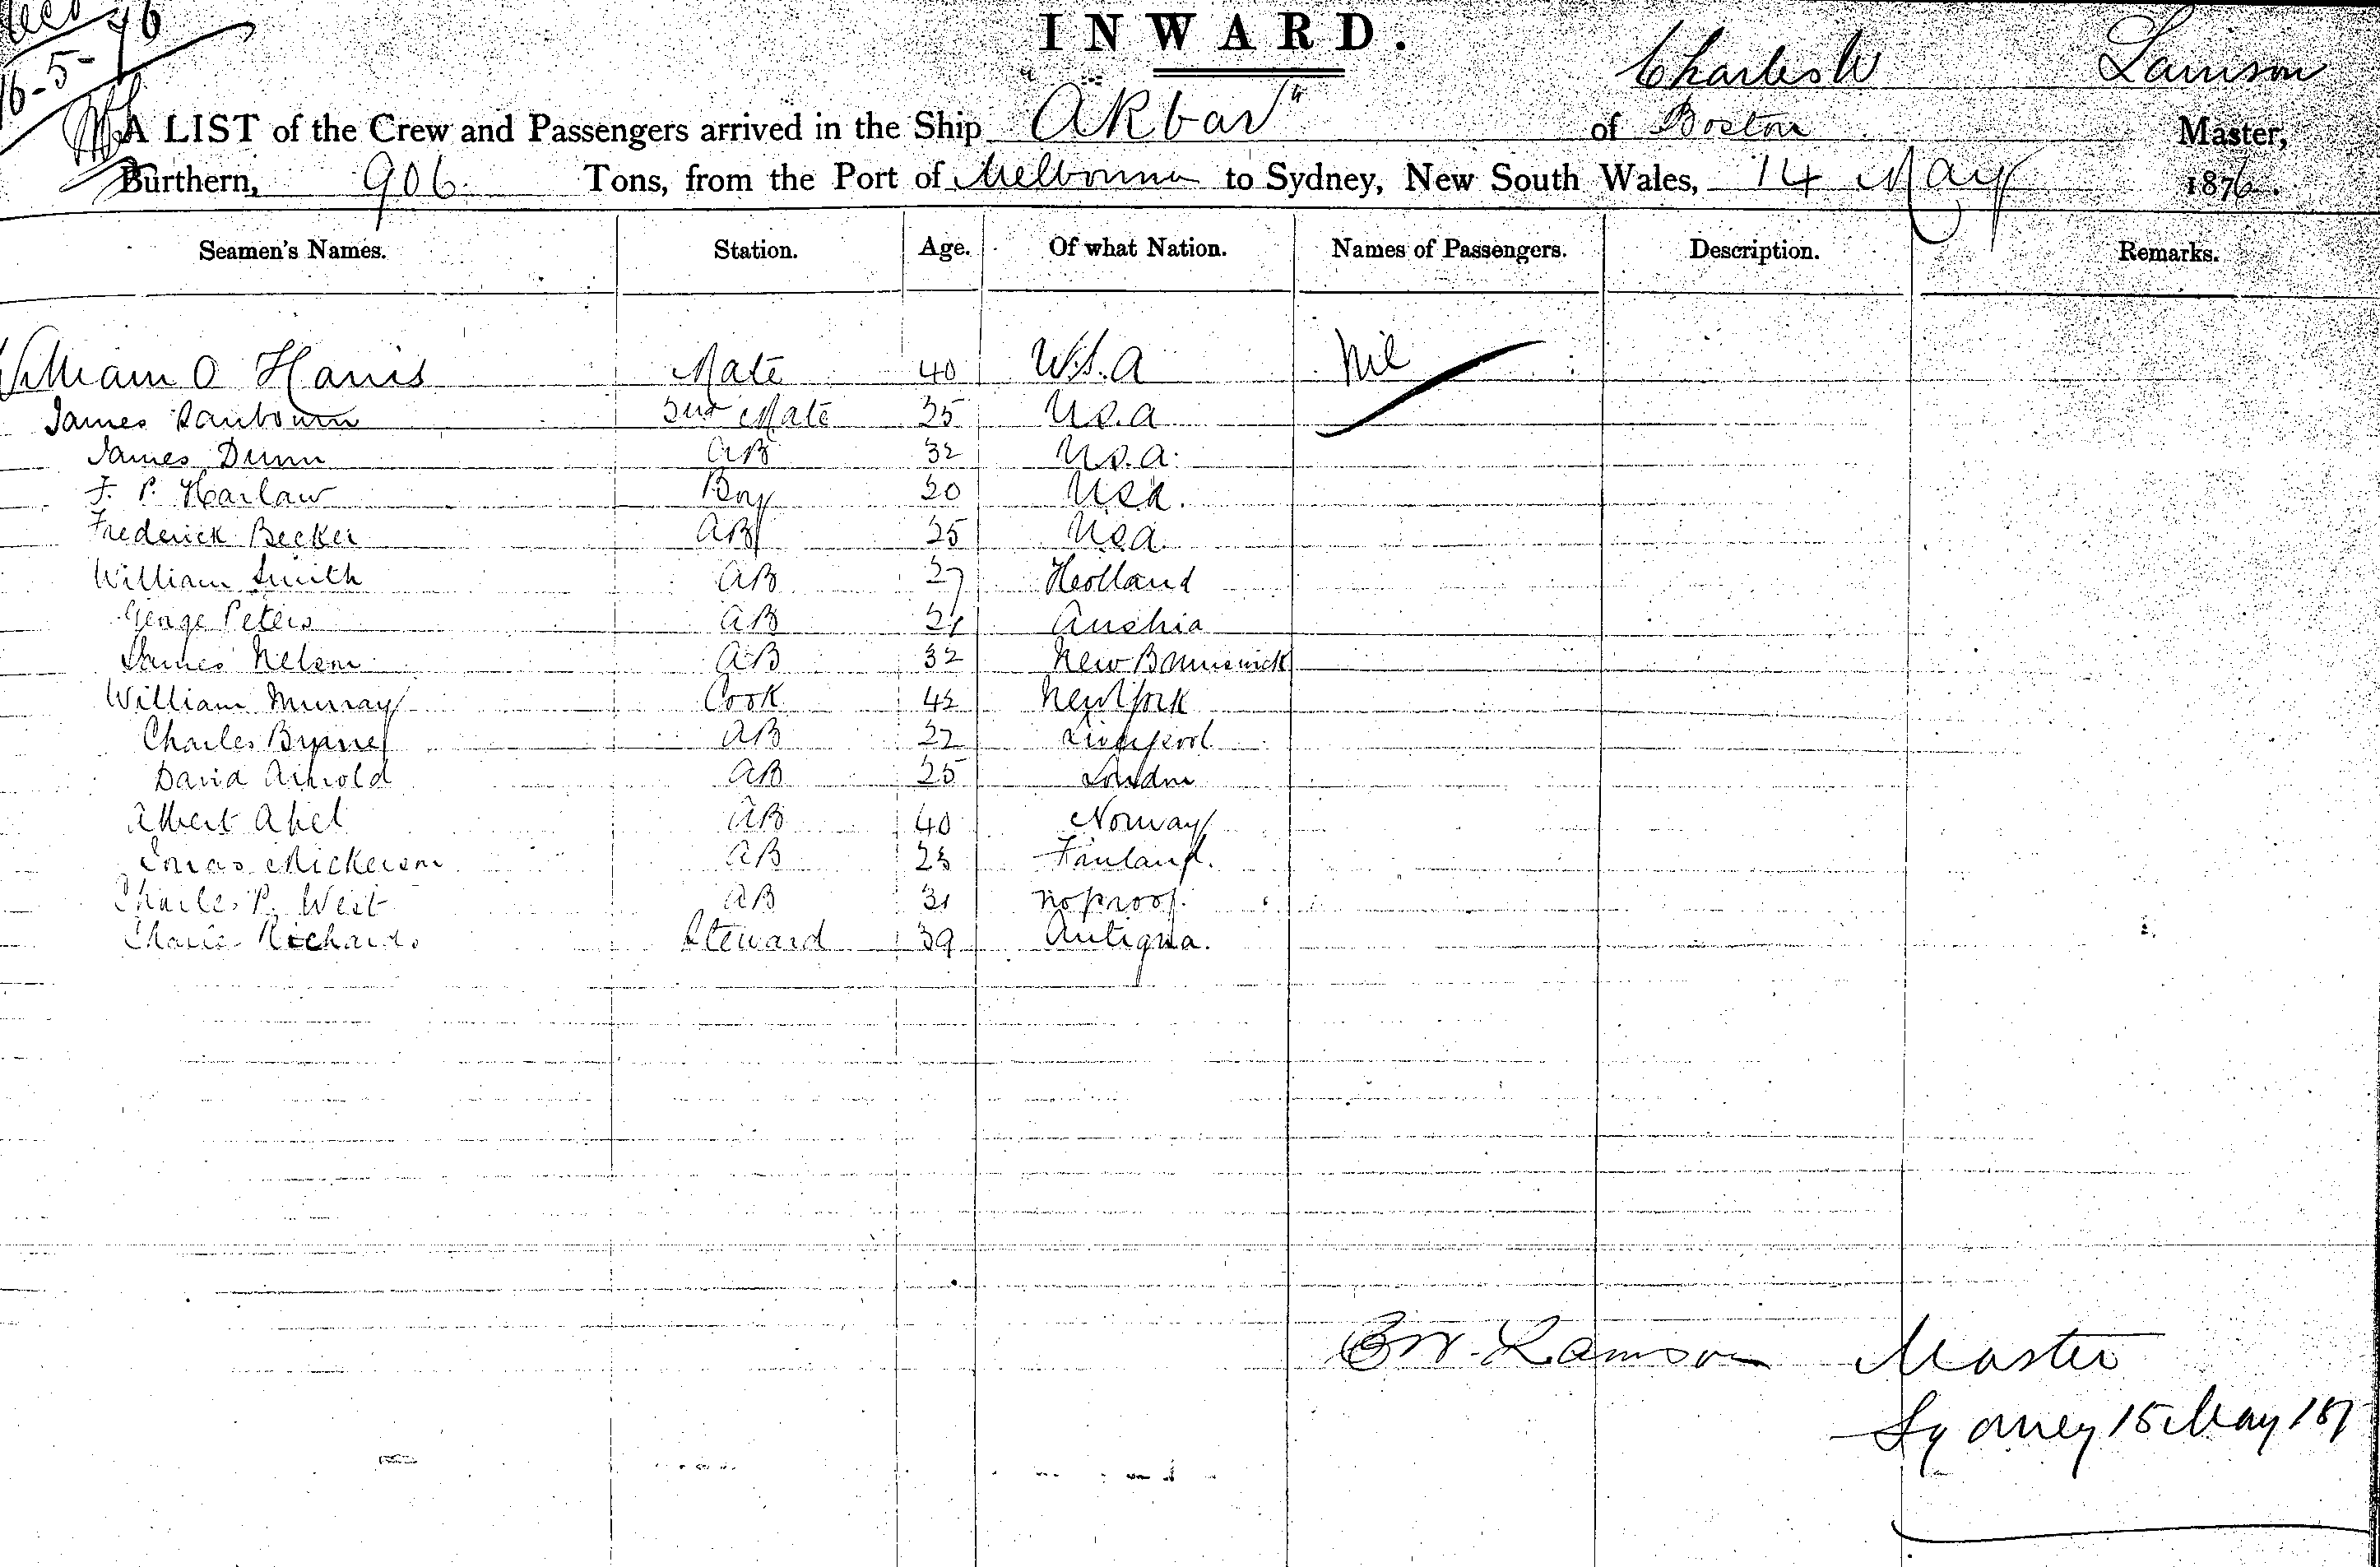 76
16-5-
INWARD.
Charles W Lamson
A LIST of the Crew and Passengers arrived in the Ship "Akbar" of Boston Master,
Burthern, 906 Tons, from the Port of Melbourne to Sydney, New South Wales, 14 May 1876.
Seamen's Names. Station. Age. Of what Nation. Names of Passengers. Description. Remarks.
William O Harris Mate 40 U.S.A Nil
James Sanbourn Mate U.S.A
James Dunn AB 32 U.S.A.
F. P. Harlaw Boy 20 USA.
Frederick Becker AB 25 USA.
William Smith AB 27 Holland
George Peters AB Austria
James Nelson AB 32 New Brunswick
William Murray Cook 42 New York
Charles Byrne AB 22 Liverpool
David Arnold AB 25 London
Albert Abel AB 40 Norway
Mickerson AB Finland.
Charles P. West AB 31 no proof.
Charles Richards Steward 39 Antigua.
C W. Lamson Master
Sydney 15 May 187